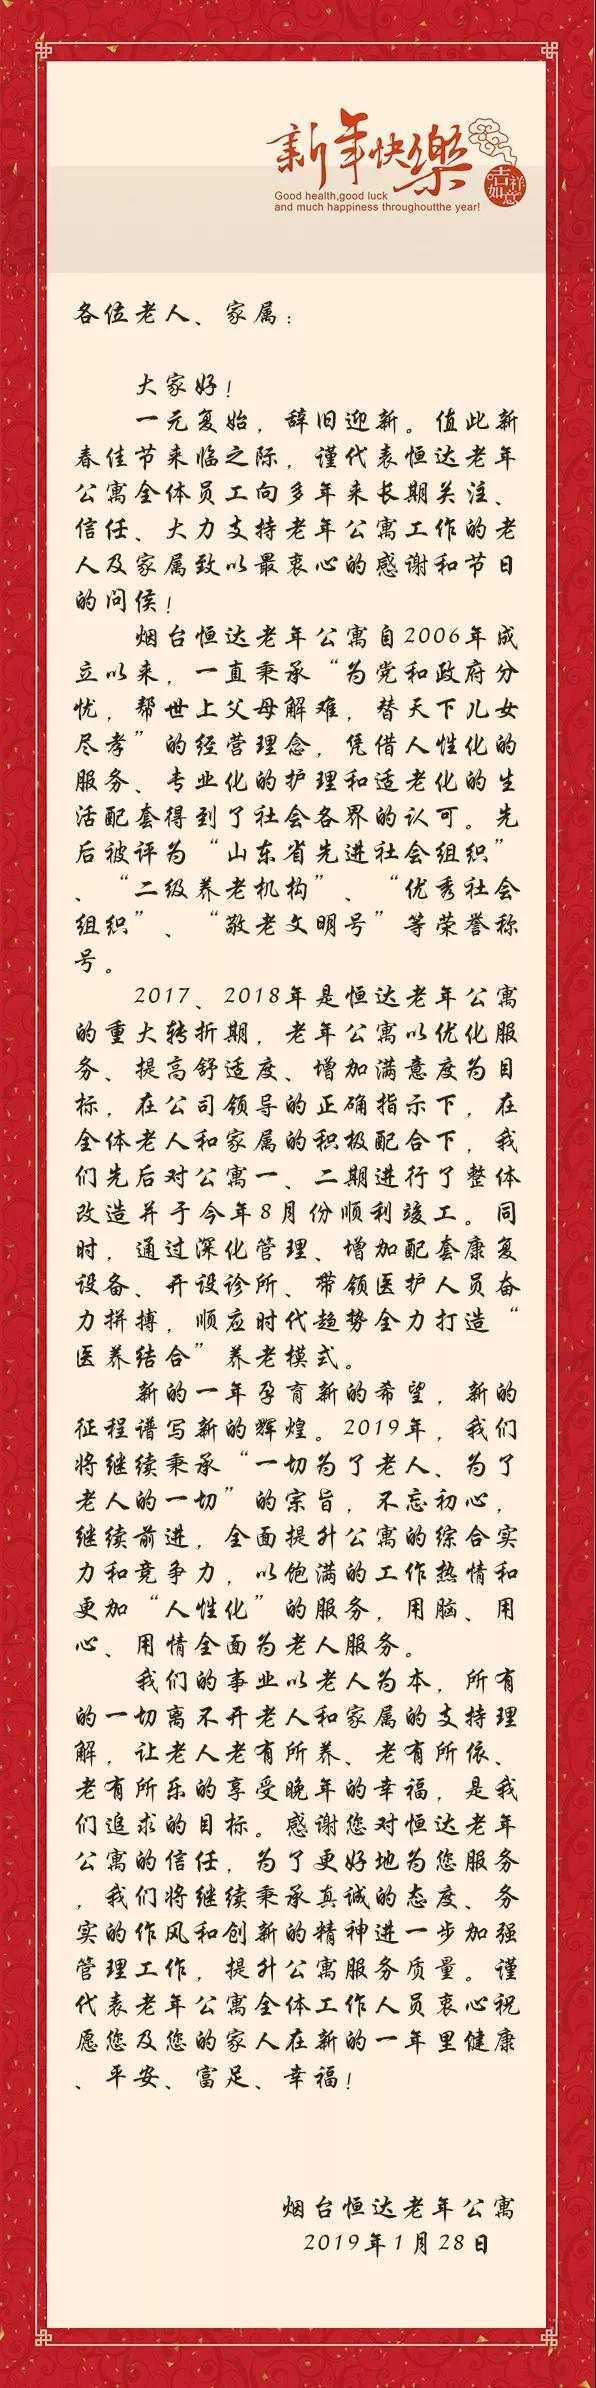 新年快樂
吉祥
如意
Good health,good luck
and much happiness throughoutthe year!
各位老人、家属：
大家好！
一元复始，辞旧迎新。值此新
春佳节来临之际，谨代表恒达老年
公寓全体员工向多年来长期关注、
信任、大力支持老年公寓工作的老
人及家属致以最衷心的感谢和节日
的问侯！
烟台恒达老年公寓自2006年成
立以来，一直秉承“为党和政府分
忧，帮世上父母解难，替天下儿女
尽孝”的经营理念，凭借人性化的
服务、专业化的护理和适老化的生
活配套得到了社会各界的认可。先
后被评为“山东省先进社会组织”
、“二级养老机构”、“优秀社会
组织”、“敬老文明号”等荣誉称
号。
2017、2018年是恒达老年公寓
的重大转折期，老年公寓以优化服
务、提高舒适度、增加满意度为目
标，在公司领导的正确指示下，在
全体老人和家属的积极配合下，我
们先后对公寓一、二期进行了整体
改造并于今年8月份顺利竣工。同
时，通过深化管理、增加配套康复
设备、开设诊所、带领医护人员奋
力拼搏，顺应时代趋势全力打造“
医养结合”养老模式。
新的一年孕育新的希望，新的
征程谱写新的辉煌。2019年，我们
将继续秉承“一切为了老人、为了
老人的一切”的宗旨，不忘初心，
继续前进，全面提升公寓的综合实
力和竞争力，以饱满的工作热情和
更加“人性化”的服务，用脑、用
心、用情全面为老人服务。
我们的事业以老人为本，所有
的一切离不开老人和家属的支持理
解，让老人老有所养、老有所依、
老有所乐的享受晚年的幸福，是我
们追求的目标。感谢您对恒达老年
公寓的信任，为了更好地为您服务
，我们将继续秉承真诚的态度、务
实的作风和创新的精神进一步加强
管理工作，提升公寓服务质量。谨
代表老年公寓全体工作人员衷心祝
愿您及您的家人在新的一年里健康
、平安、富足、幸福！
烟台恒达老年公寓
2019年1月28日